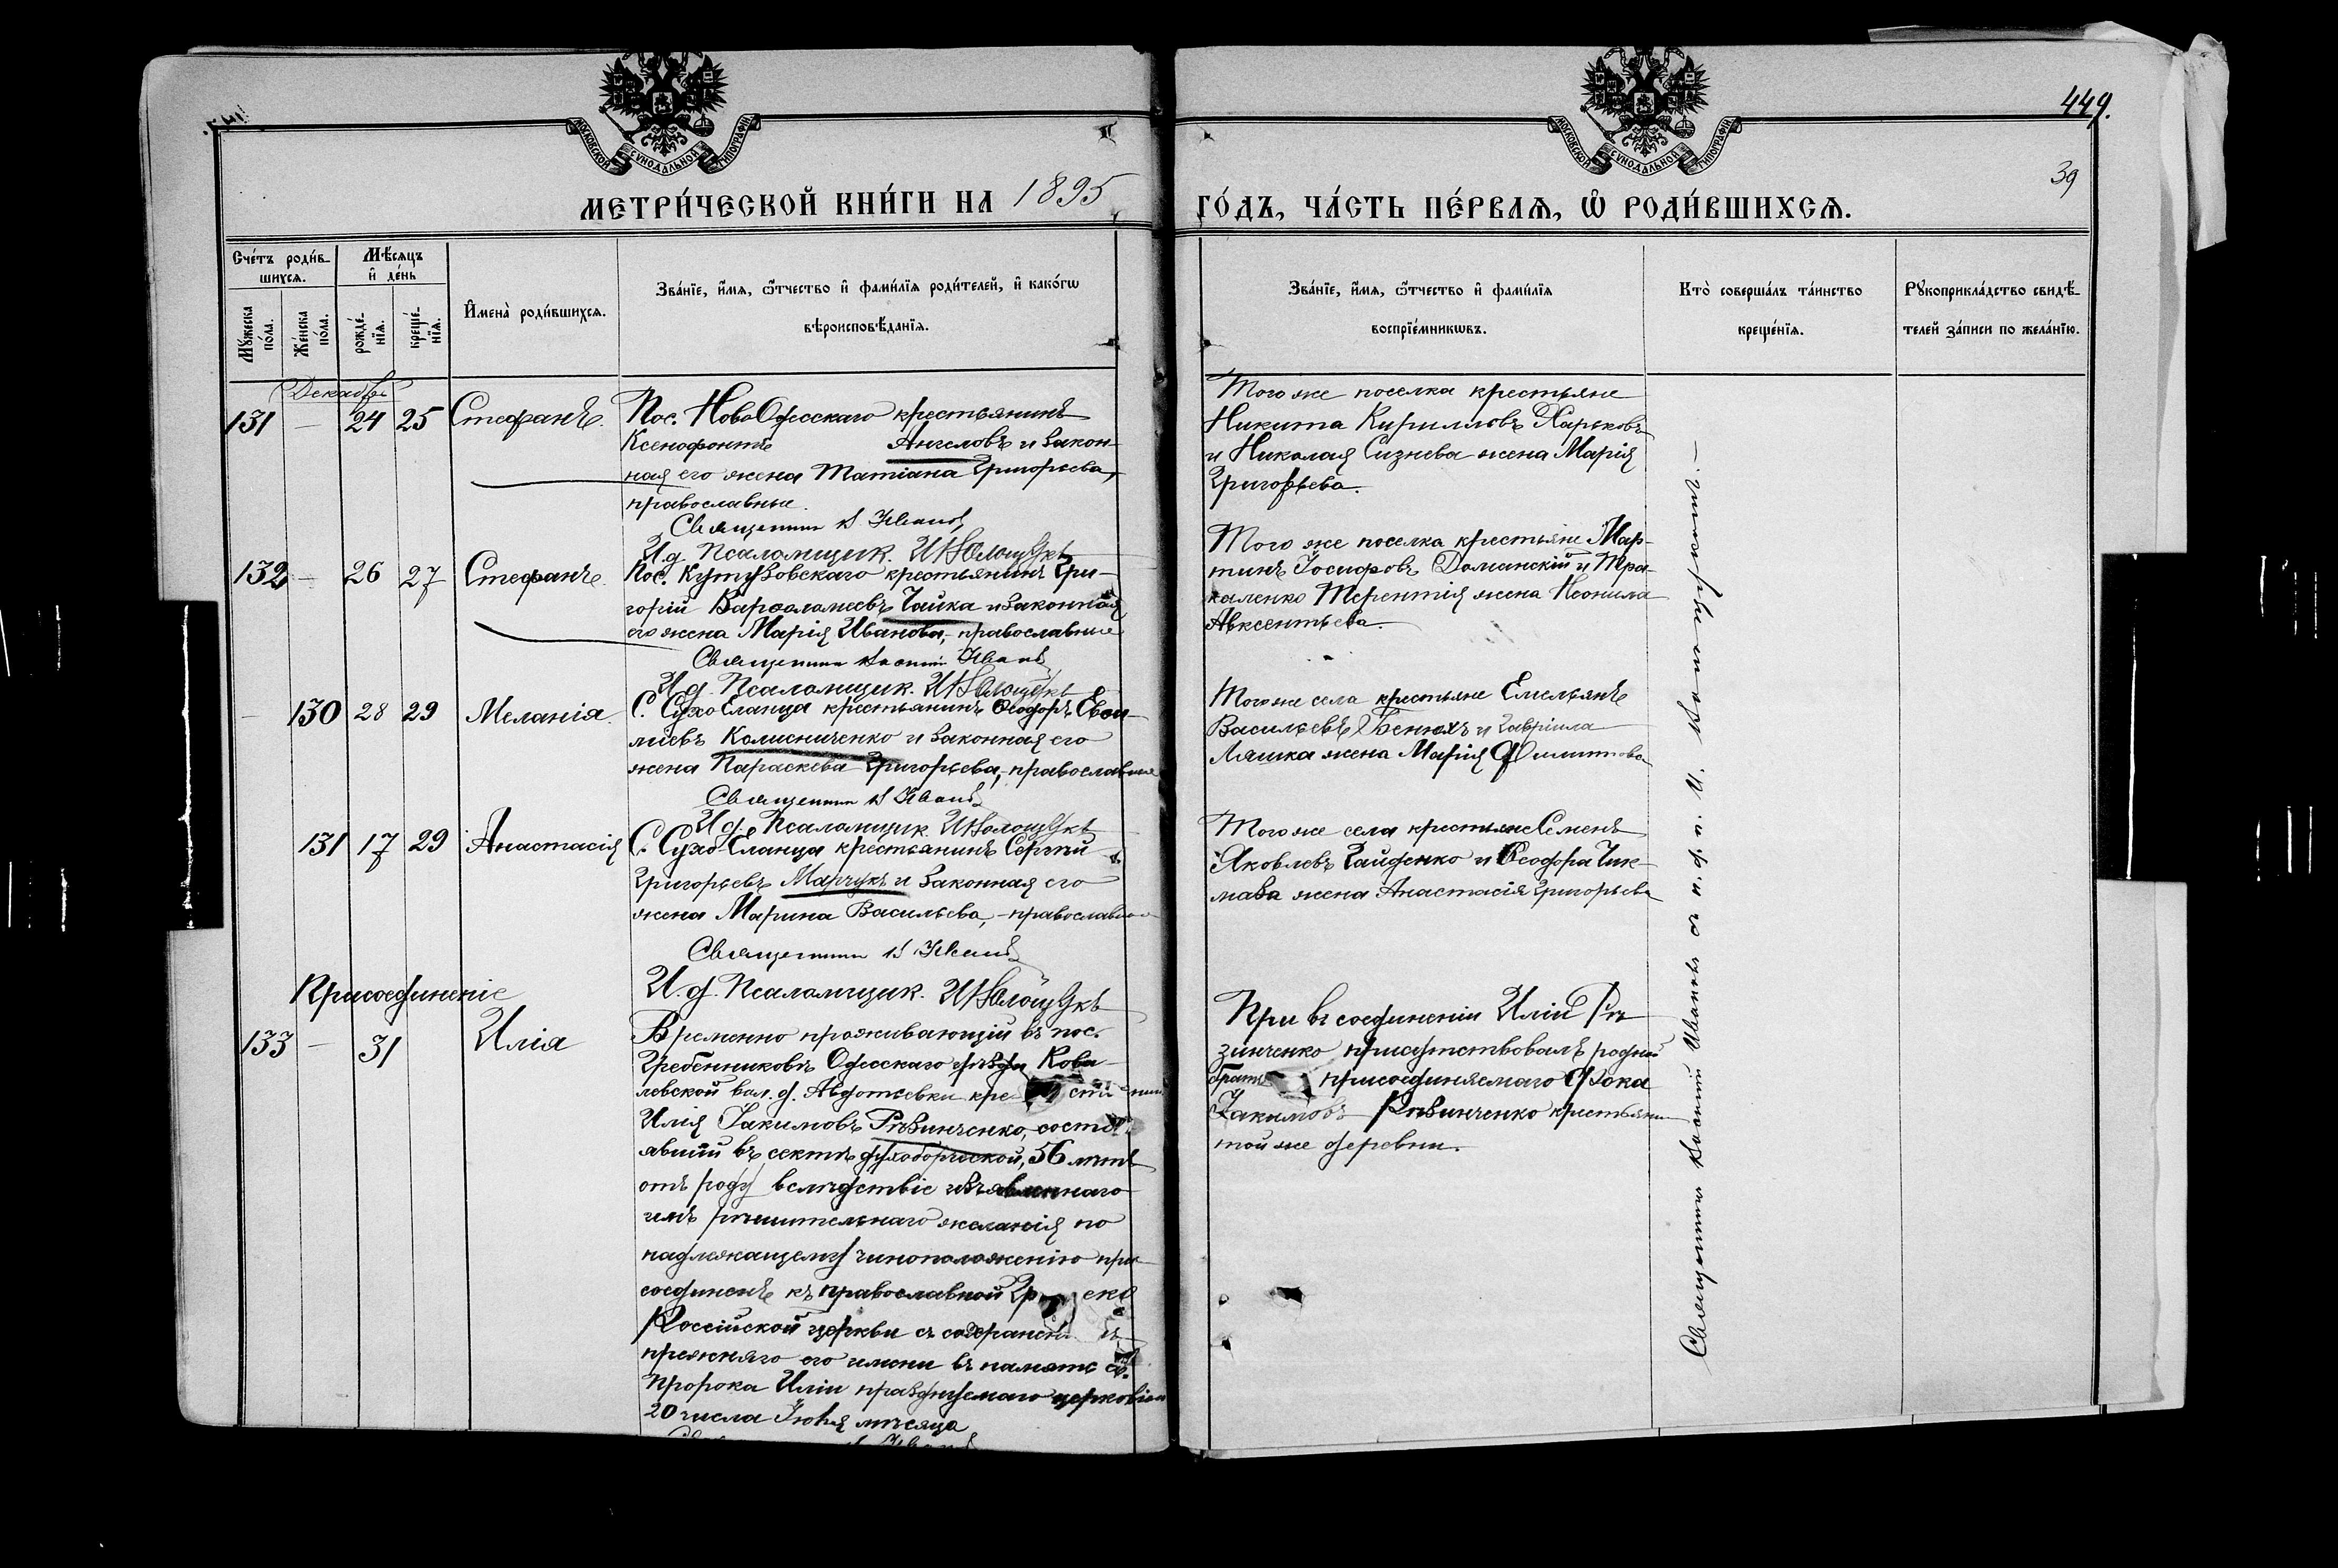 449.
39
МОСКОВСКОЙ СѴНОДАЛЬНОЙ ТИПОГРАФІИ
МОСКОВСКОЙ СѴНОДАЛЬНОЙ ТИПОГРАФІИ
МЕТРИ́ЧЕСКОЙ КНИ́ГИ НА 1895
ГО́ДЪ, ЧА́СТЬ ПЕ́РВАѦ, Ѡ РОДИ́ВШИХСѦ.
Сче́тъ роди́в-
шихсѧ.
Мѣ́сѧцъ
и де́нь
Мꙋжеска
по́ла.
Же́нска
по́ла.
рожде́-
нїѧ.
креще́-
нїѧ.
И҆мена̀ роди́вшихсѧ.
Зва́нїе, и҆́мѧ, ѻ҆́тчество и҆ фами́лїѧ роди́телей, и҆ како́гѡ
вѣроисповѣ́данїѧ.
Зва́нїе, и҆́мѧ, ѻ҆́тчество и҆ фами́лїѧ
воспрїе́мникѡвъ.
Кто̀ соверша́лъ та́инство
креще́нїѧ.
Рꙋкоприкла́дство свидѣ́-
телей за́писи по жела́нїю.
Декабрь
131 — 24 25 Стефанъ.
Пос. НовоОдесскаго крестьянинъ
Ксенофонтъ Ангеловъ и закон-
ная его жена Татіана Григорьева,
православные.
Священникъ І Ивановъ
И.д. Псаломщик.
Того же поселка крестьяне
Никита Кирилловъ Харьковъ
и Николая Сизнева жена Марія
Григорьева.
132 — 26 27 Стефанъ.
Пос. Кутузовскаго крестьянинъ Гри-
горій Варѳоломеевъ Чайка и законная
его жена Марія Иванова,- православные
Священникъ Іоаннъ Ивановъ
И.д. Псаломщик.
Того же поселка крестьяне Мар-
тинъ Іосифовъ Доманскій и Тра-
каленко Терентія жена Неонила
Авксентьева.
— 130 28 29 Меланія.
С. Сухо Еланца крестьянинъ Ѳеодоръ Евѳи-
міевъ Колисниченко и законная его
жена Параскева Григорьева,- православные
Священникъ І Ивановъ
И.д. Псаломщик.
Того же села крестьяне Емельянъ
Васильевъ Бенюхъ и Гавріила
Ляшка жена Марія Филиппова
131 17 29 Анастасія
С. Сухо-Еланца крестьянинъ Сергій
Григорьевъ Марчукъ и законная его
жена Марина Васильева, - православные
Священникъ І Ивановъ
И.д. Псаломщик.
Того же села крестьяне Семенъ
Яковлевъ Гайденко и Ѳеодора Чик-
маза жена Анастасія Григорьева
Присоединеніе
133 — 31 Илія
Временно проживающій въ пос.
Гребенниковъ Одесскаго уѣзда Кова-
левской вол. д. Авдотьевки кре
Илія Іакимовъ Рѣзинченко, состо
явшій въ сектѣ духоборческой, 56 лѣтъ
отъ роду вслѣдствіе изъявленнаго
имъ рѣшительнаго желанія по
надлежащему чиноположенію при-
соединенъ къ православной Гр еко
Россійской церкви съ
прежняго его имени въ память св.
Пророка Иліи празднуемаго церковію
20 числа Іюля мѣсяца
При въ соединеніи Иліи Рѣ-
зинченко присутствовалъ родной
братъ присоединяемаго Фока
Іакимовъ Рѣзинченко крестьянин
той же деревни.
Священникъ Іоаннъ Ивановъ съ и. д. п. И.